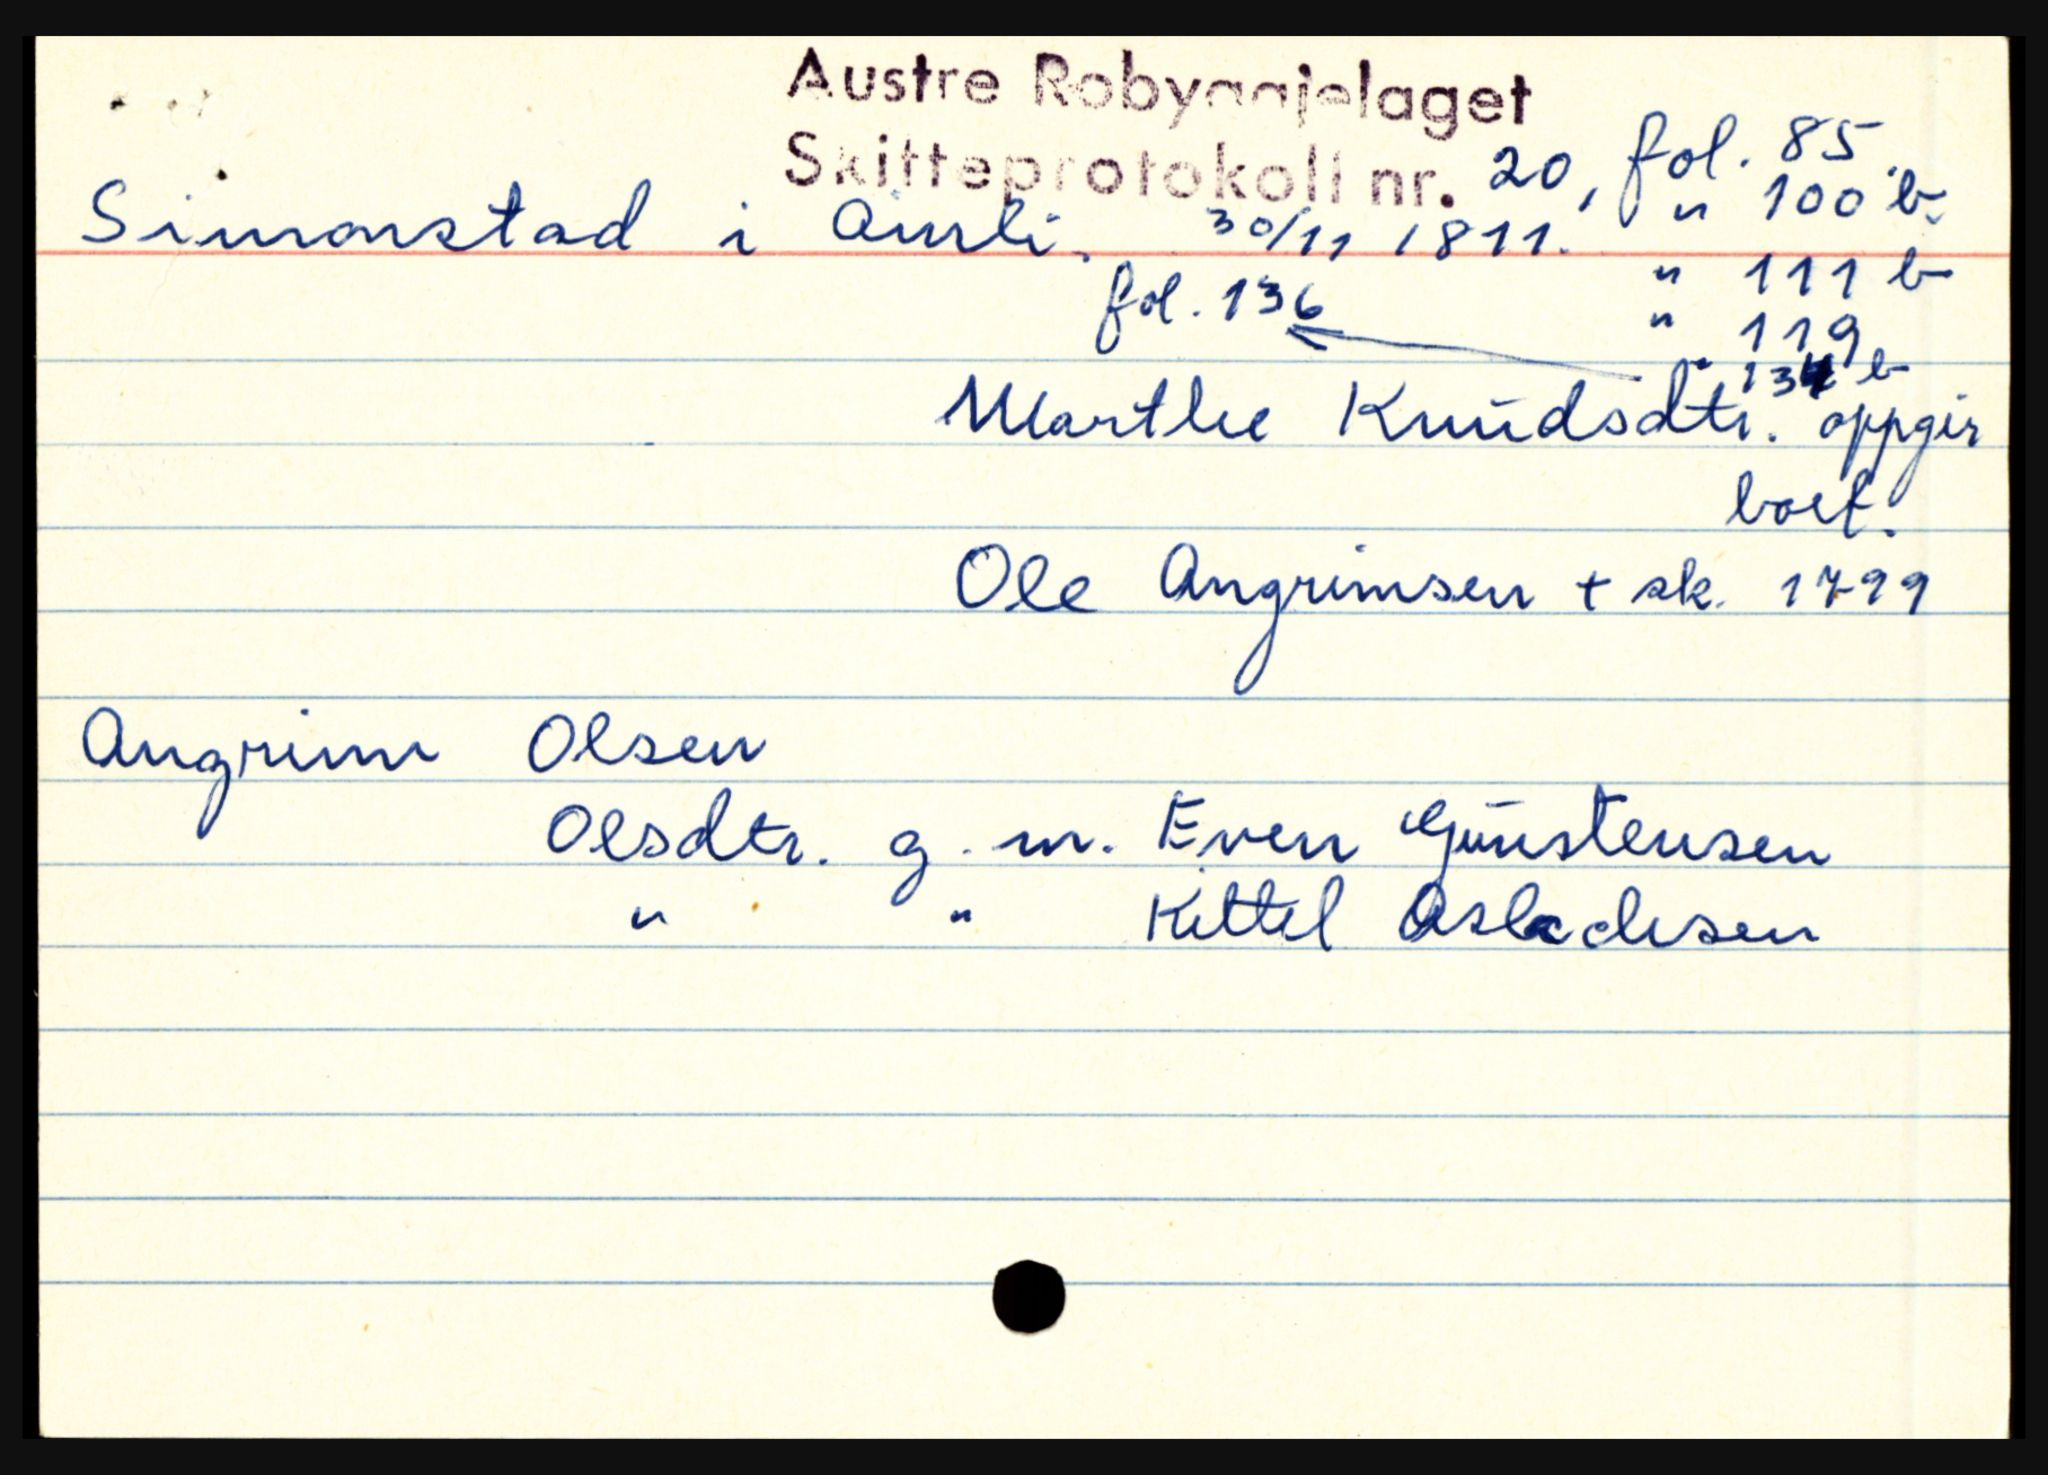 Austre Robyggjelaget
Skifteprotokoll nr. 20, fol. 85
" 100 b.
Simonstad i Åmli. 30/11 1811.
" 111 b
fol. 136
" 119
" 134 b
Marthe Knudsdtr. oppgir
boet.
Ole Angrimsen + sk. 1799
Angrim Olsen
Olsdtr. g. m. Even Gunstensen
" " Kittel Aslachsen